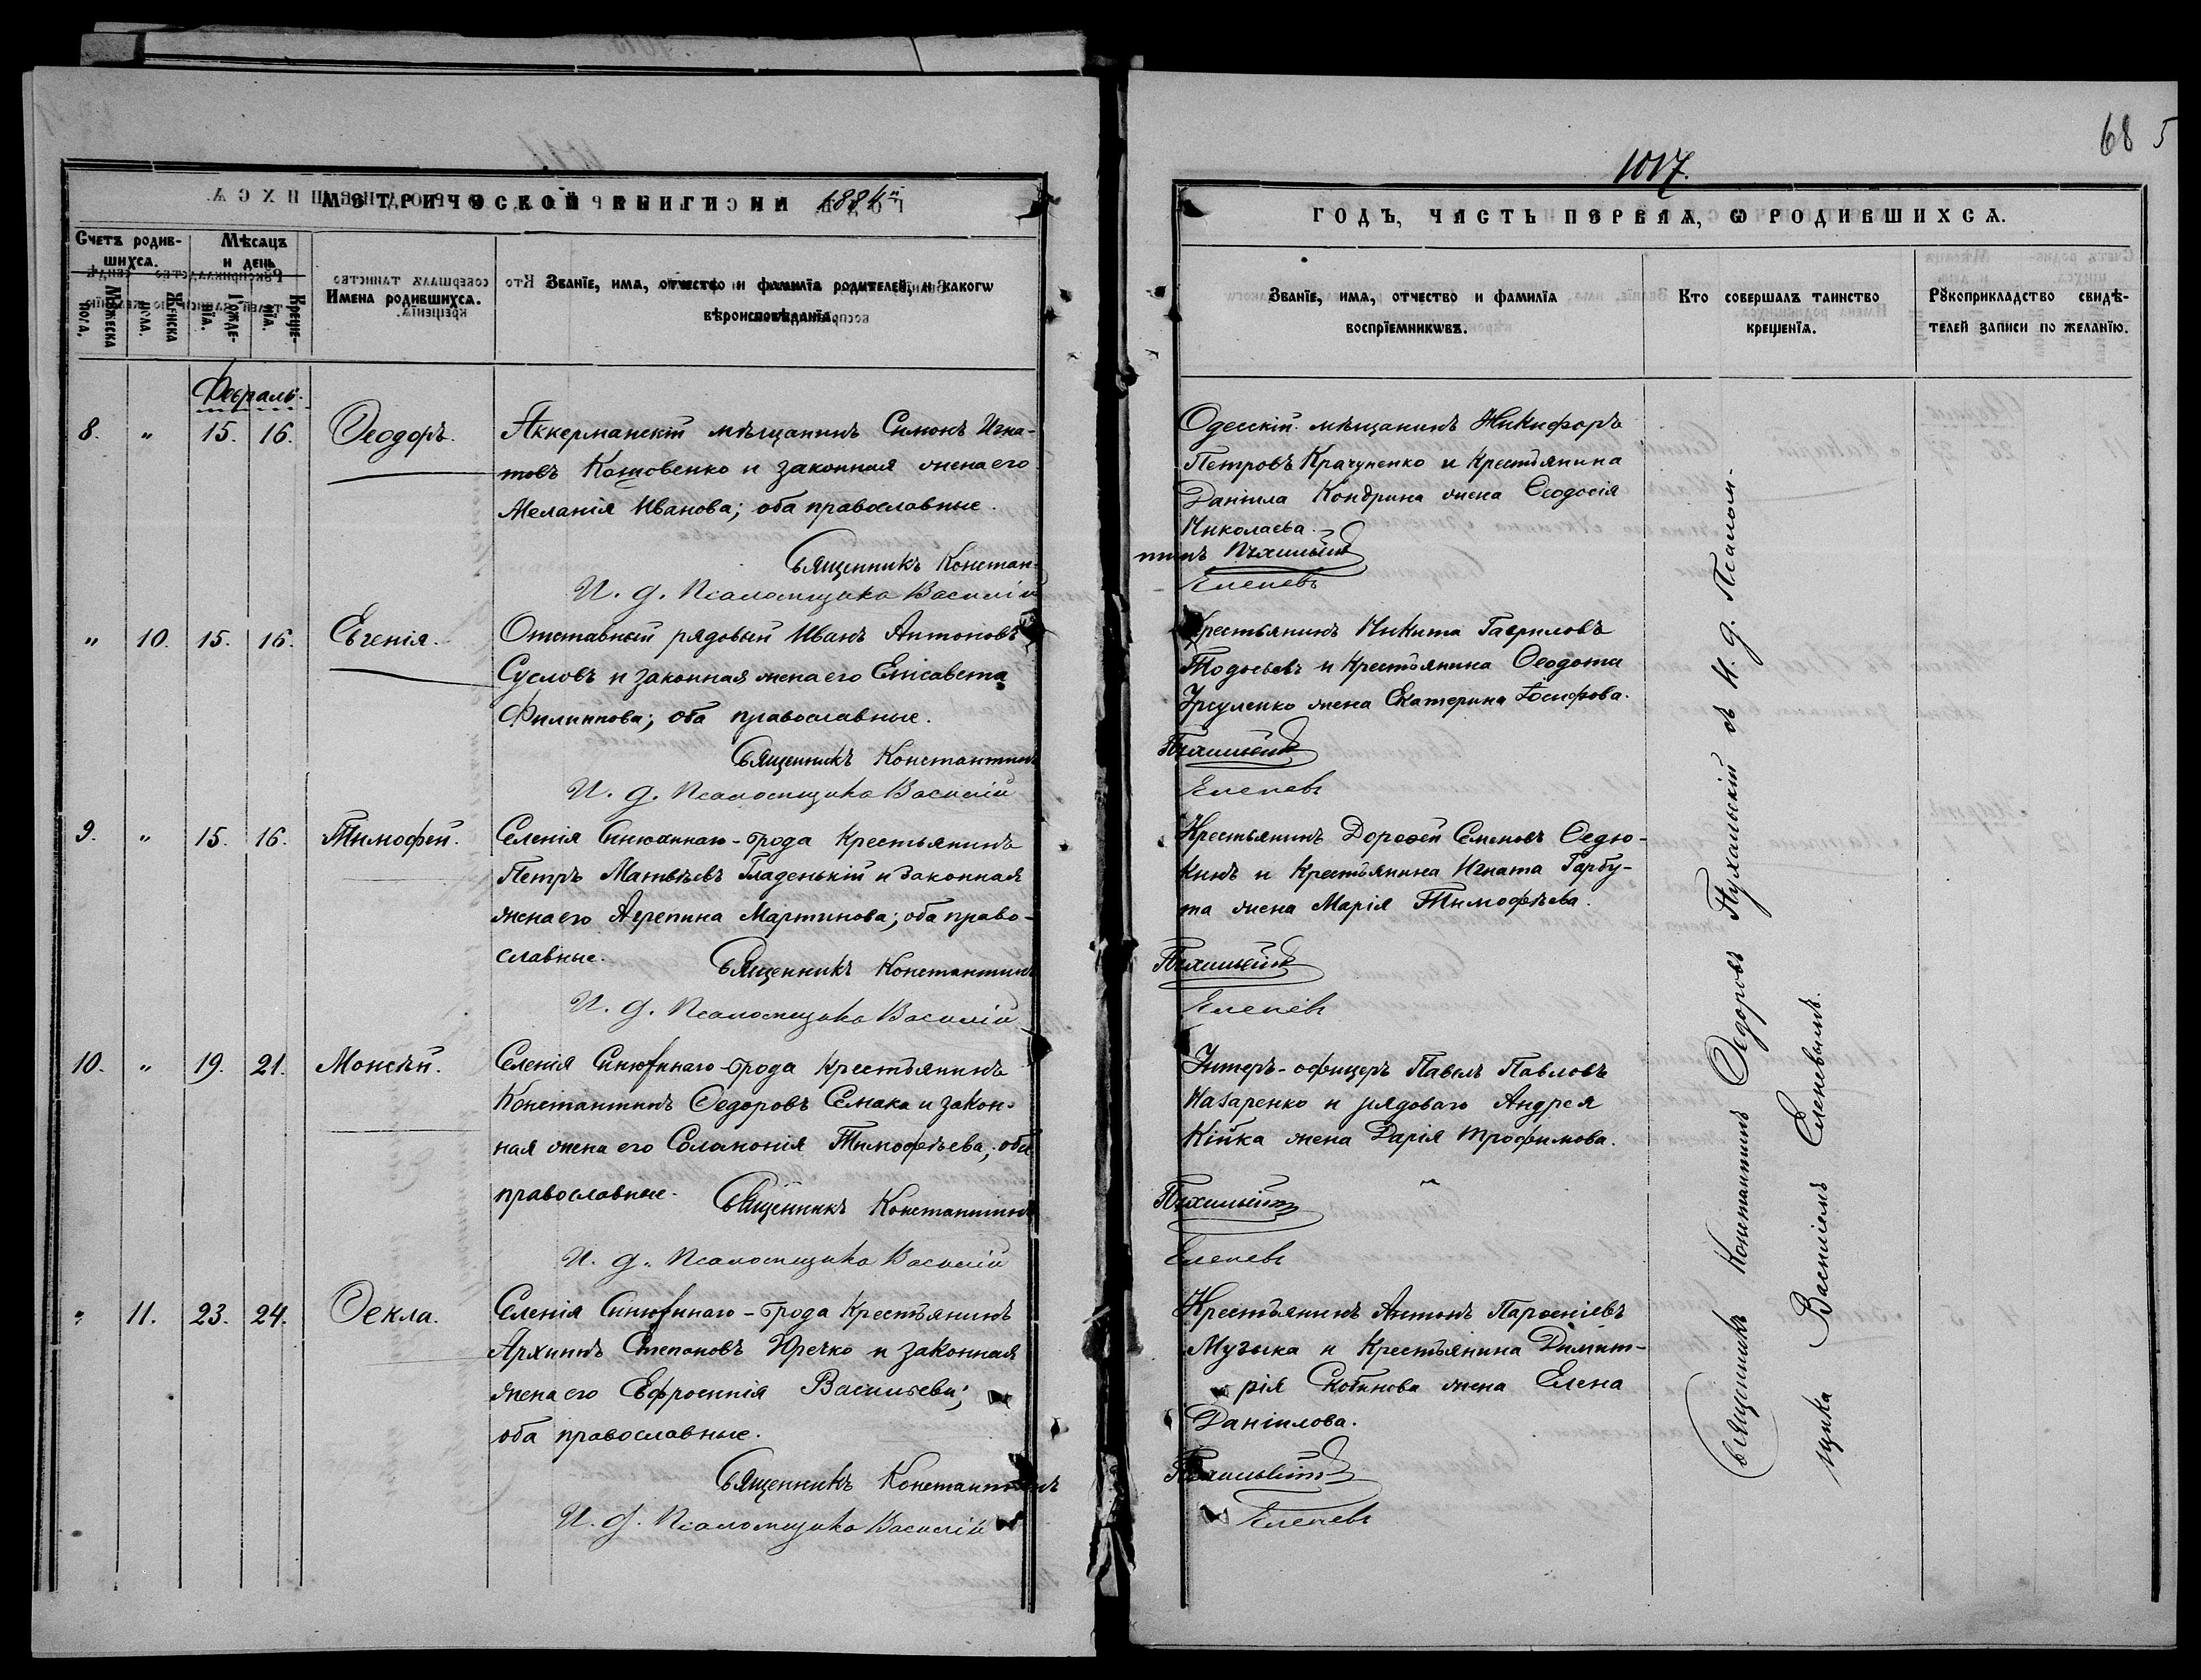 МЕТРИЧЕСКОЙ КНИГИ НА 1884й
Счетъ родившихся.
Мѣсяцъ и день
Мужеска пола.
Женска пола.
Рожденїя.
Крещенїя.
Имена родившихся.
Званїе, имя, отчество и фамилїя родителей, и какогѡ
вѣроисповѣданїя.
Февраль.
8. " 15. 16. Ѳеодоръ.
Аккерманскій мѣщанинъ Симонъ Игна-
товъ Котовенко и законная жена его
Меланія Иванова; оба православные.
Священникъ Констан-
И. д. Псаломщика Василій
" 10. 15. 16. Евгенія.
Отставный рядовый Иванъ Антоновъ
Сусловъ и законная жена его Елисавета
Филиппова; оба православные.
Священникъ Константинъ
И. д. Псаломщика Василій
9. " 15. 16. Тимофей.
Селенія Синюхинаго-Брода крестьянинъ
Петръ Матвѣевъ Гладенькій и законная
жена его Агрепина Мартинова; оба право-
славные.
Священникъ Константинъ
И. д. Псаломщика Василій
10. " 19. 21. Моисѣй.
Селенія Синюхинаго-Брода крестьянинъ
Константинъ Ѳедоровъ Семака и закон-
ная жена его Соломонія Тимофѣева; оба
православные.
Священникъ Константинъ
И. д. Псаломщика Василій
" 11. 23. 24. Ѳекла.
Селенія Синюхинаго-Брода крестьянинъ
Архипъ Степановъ Юречко и законная
жена его Ефросинія Васильева;
оба православные.
Священникъ Константинъ
И. д. Псаломщика Василій
68 5
1017.
ГОДЪ, ЧАСТЬ ПЕРВАЯ, Ѡ РОДИВШИХСЯ.
Званїе, имя, отчество и фамилїя
воспрїемникѡвъ.
Кто совершалъ таинство
крещенїя.
Рукоприкладство свидѣ-
телей записи по желанїю.
Одесскій мѣщанинъ Никифоръ
Петровъ Крачуненко и крестьянина
Даніила Кондрина жена Ѳеодосія
Николаева.
тинъ Пухальскій
Еленевъ
Крестьянинъ Никита Гавриловъ
Тодосьевъ и крестьянина Ѳеодота
Урсуленко жена Екатерина Іосифова.
Пухальскій
Еленевъ
Крестьянинъ Дороѳей Семеновъ Ѳедю-
кинъ и крестьянина Игната Гарбу-
та жена Марія Тимофѣева.
Пухальскій
Еленевъ
Унтеръ-офицеръ Павелъ Павловъ
Назаренко и рядоваго Андрея
Кійка жена Дарія Трофимова.
Пухальскій
Еленевъ
Крестьянинъ Антонъ Парѳеніевъ
Музыка и крестьянина Димит-
рія Скобинова жена Елена
Даніилова.
Пухальскій
Еленевъ
Священникъ Константинъ Ѳедоровъ Пухальскій съ И. д. Псалом-
щика Василіемъ Еленевымъ.